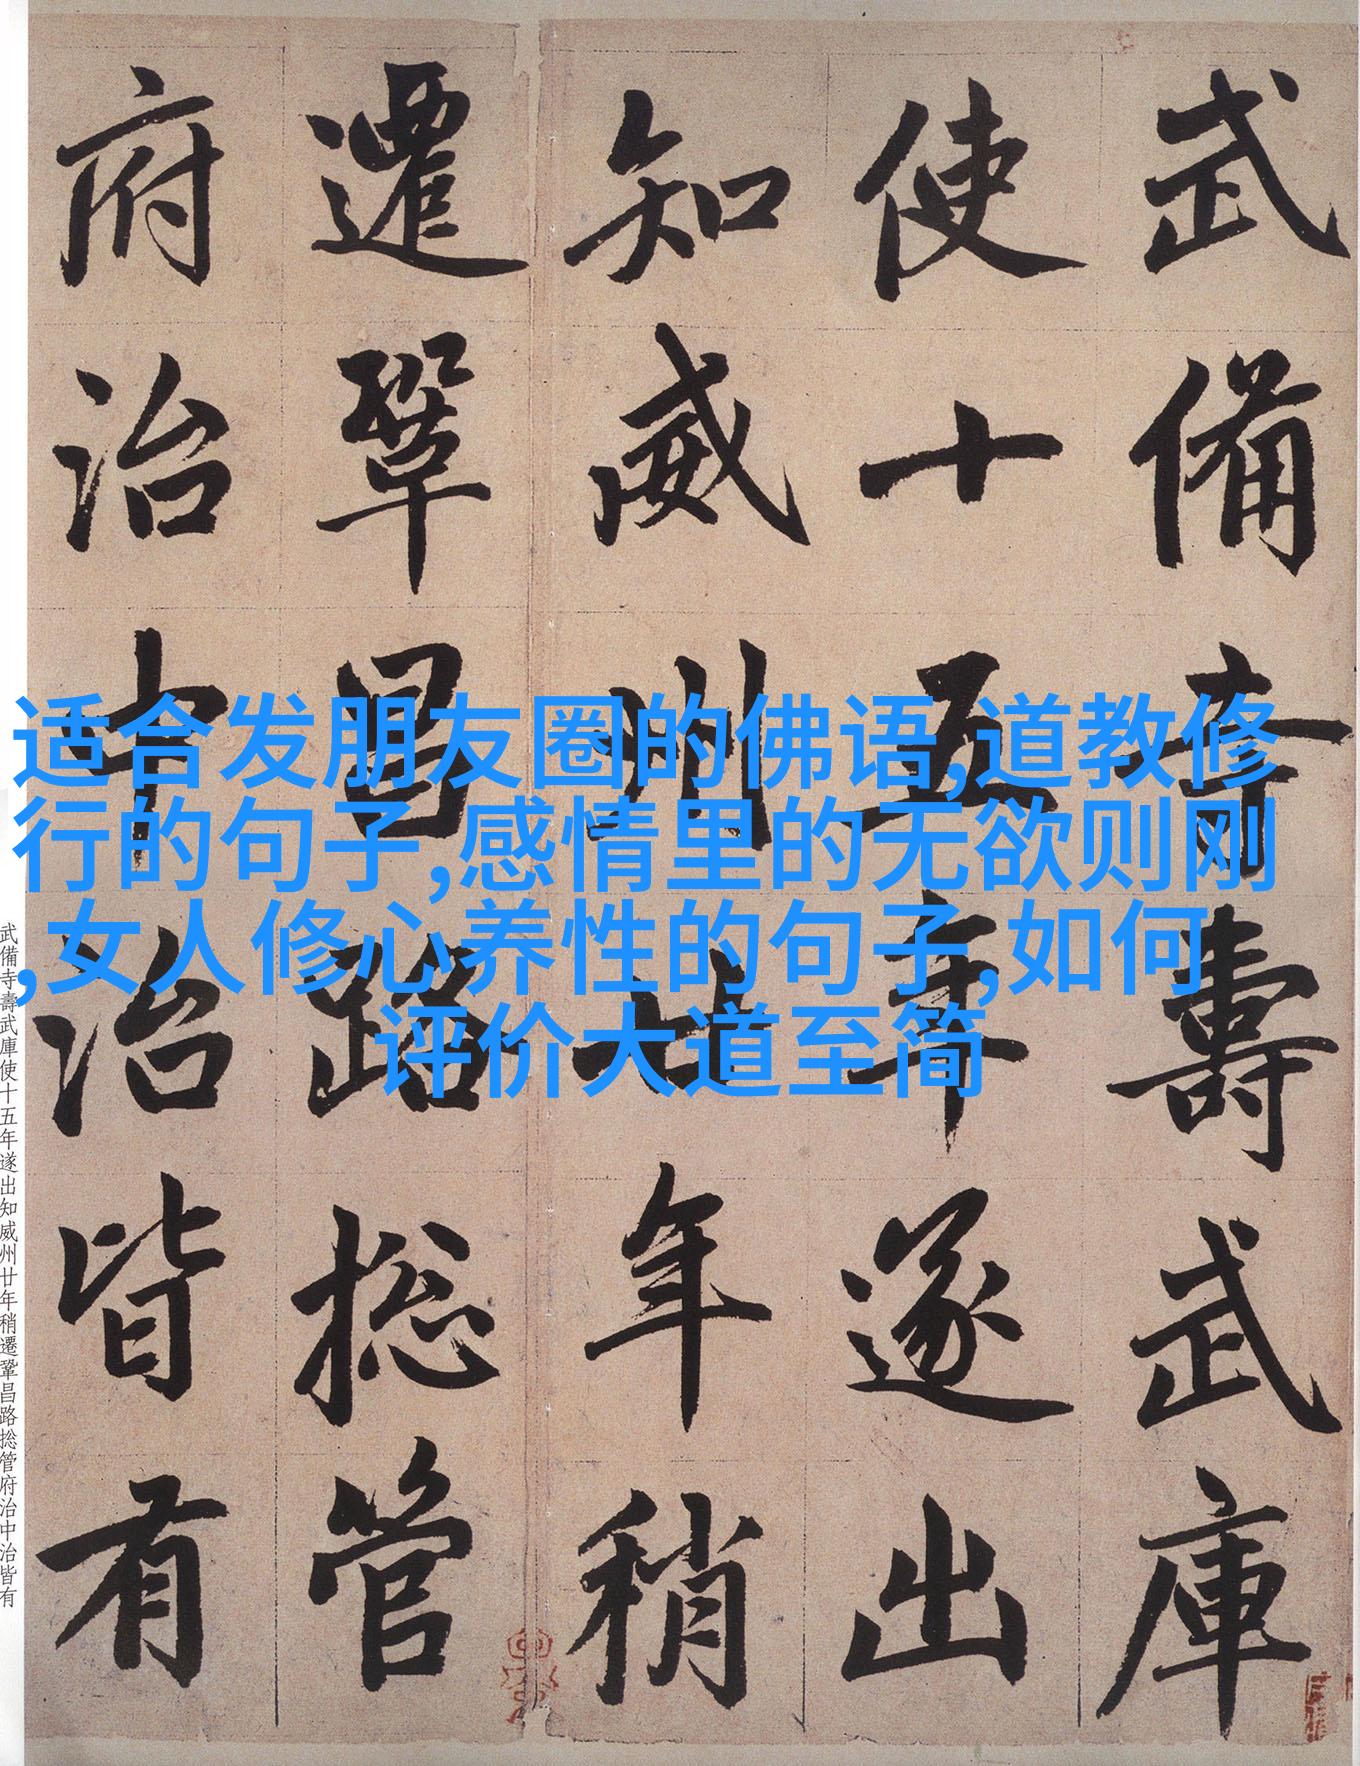 武備寺壽武庫
使十五年遂出
知威州廿年稍
遷鞏昌路捴管
府治中治皆有
适合发朋友圈的佛语,道教修
行的句子,感情里的无欲则刚
,女人修心养性的句子,如何
评价大道至简
武備寺壽武庫使十五年遂出知威州廿年稍遷鞏昌路捴管府治中治皆有